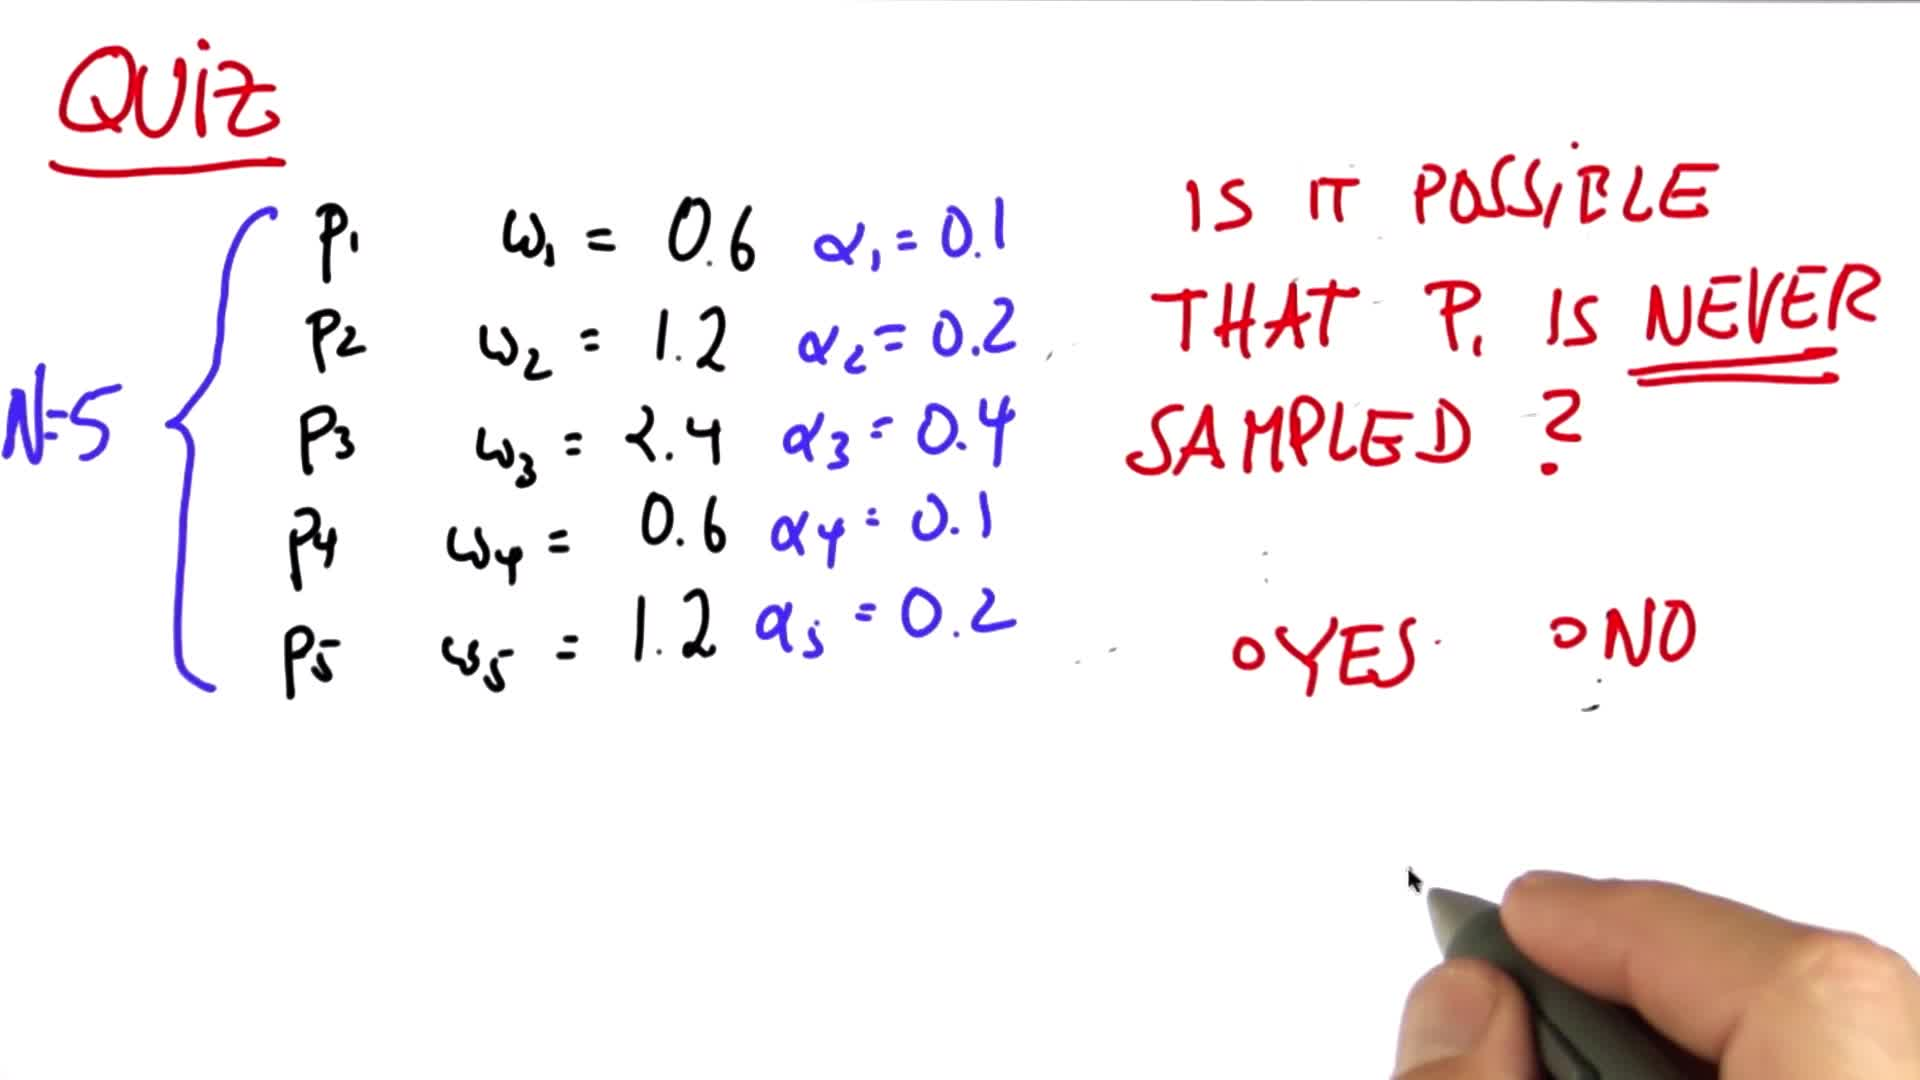 QUIZ
N=5
p1 ω1 = 0.6 α1 = 0.1
p2 ω2 = 1.2 α2 = 0.2
p3 ω3 = 2.4 α3 = 0.4
p4 ω4 = 0.6 α4 = 0.1
p5 ω5 = 1.2 α5 = 0.2
IS IT POSSIBLE
THAT P1 IS NEVER
SAMPLED ?
YES NO